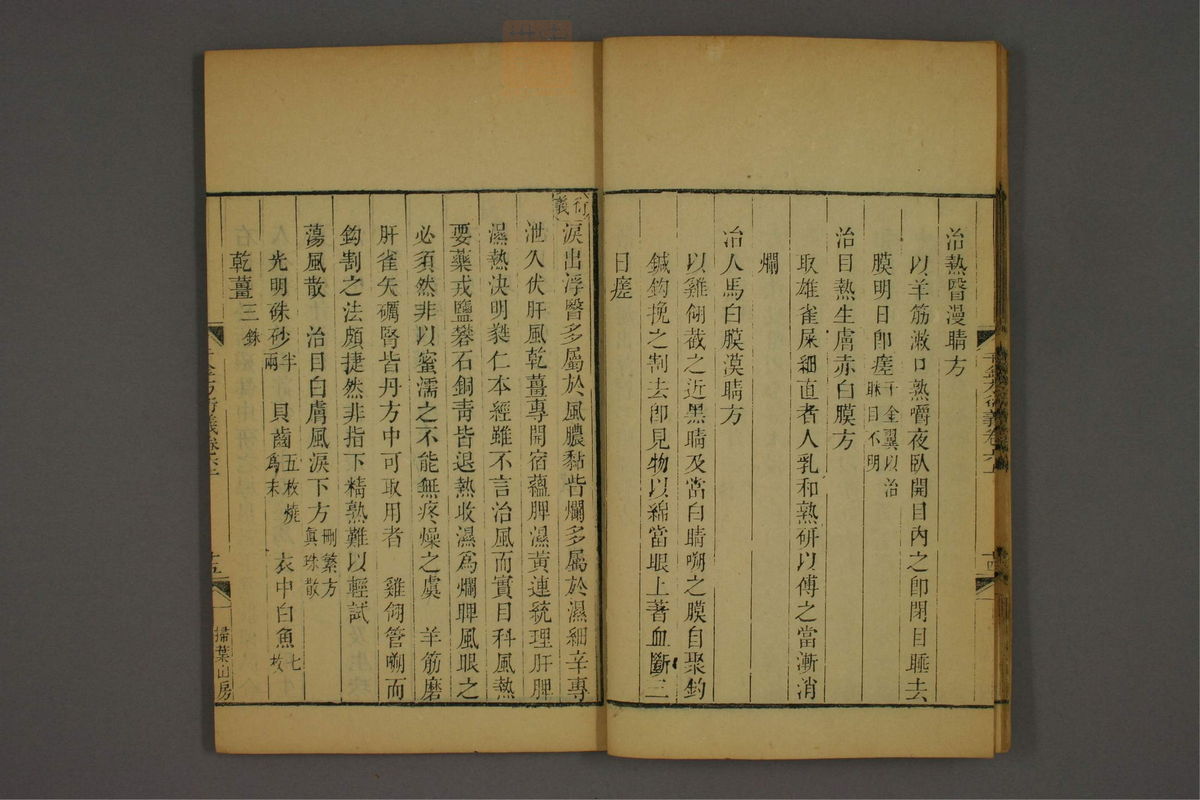 治熱瞖漫睛方
以羊筋漱口熟嚼夜臥開目內之卽閉目睡去
膜明日卽瘥千金翼以治眯目不明
治目熱生膚赤白膜方
取雄雀屎細直者人乳和熟研以傅之當漸消
爛
治人馬白膜漠睛方
以雞翎截之近黑睛及當白睛嗍之膜自聚釣
鍼鈎挽之割去卽見物以綿當眼上著血斷三
日瘥
千金方衍義卷六上
十四
衍義
淚出浮瞖多屬於風膿黏眥爛多屬於濕細辛專
泄久伏肝風乾薑專開宿蘊脾濕黃連統理肝脾
濕熱決明蕤仁本經雖不言治風而實目科風熱
要藥戎鹽礬石銅靑皆退熱收濕爲爛脾風眼之
必須然非以蜜濡之不能無疼燥之虞　羊筋磨
肝雀矢礪腎皆丹方中可取用者　雞翎管嗍而
鈎割之法頗捷然非指下精熟難以輕試
蕩風散　治目白膚風淚下方刪繁方眞珠散
光明硃砂半兩　貝齒五枚燒爲末　衣中白魚七枚
乾薑三銖
千金方衍義卷六上
十五
掃葉山房